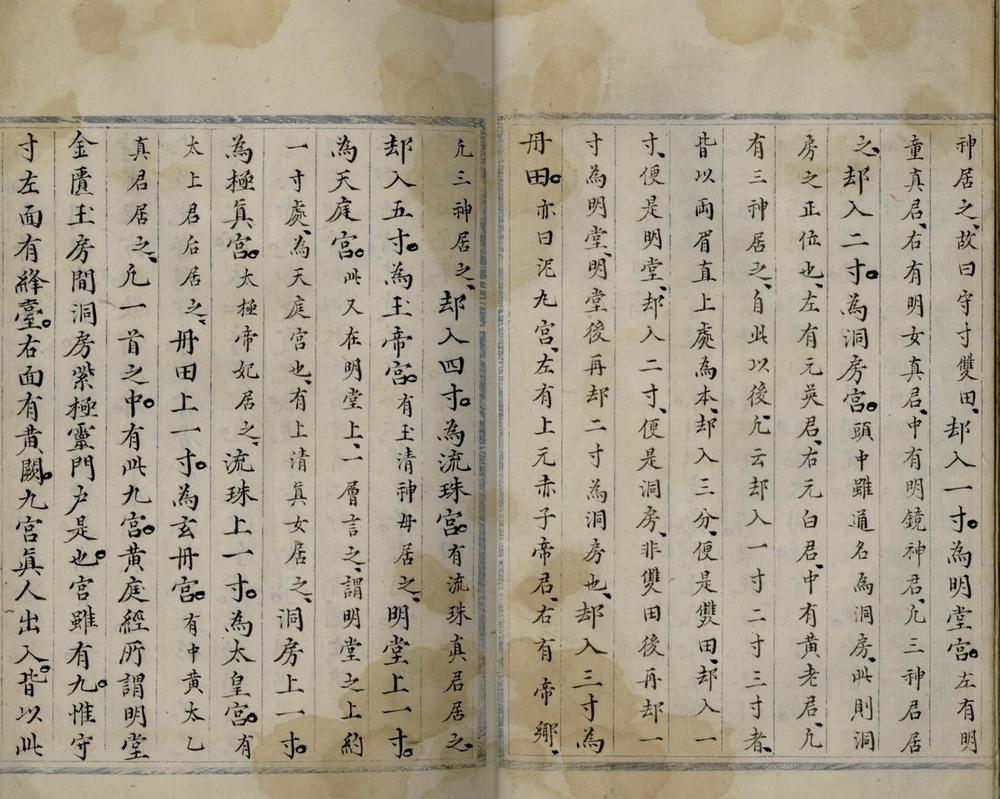 神居之、故曰守寸雙田、却入一寸。為明堂宮。左有明
童真君、右有明女真君、中有明鏡神君、凢三神君居
之、却入二寸。為洞房宮。頭中雖通名為洞房、此則洞
房之正位也、左有元英君、右元白君、中有黃老君、凢
有三神居之、自此以後、凢云却入一寸二寸三寸者、
皆以両眉直上處為本、却入三分、便是雙田、却入一
寸、便是明堂、却入二寸、便是洞房、非雙田後再却一
寸為明堂、明堂後再却二寸為洞房也、却入三寸為
丹田。亦曰泥九宮、左有上元赤子帝君、右有帝鄉、
凢三神居之、却入四寸。為流珠宮。有流珠真君居之
却入五寸。為玉帝宮。有玉清神母居之、明堂上一寸。
為天庭宮。此又在明堂上、一層言之、謂明堂之上約
一寸處、為天庭宮也、有上清真女居之、洞房上一寸。
為極真宮。太極帝妃居之、流珠上一寸。為太皇宮。有
太上君后居之、丹田上一寸。為玄丹宮。有中黃太乙
真君居之、凢一首之中。有此九宮。黃庭經所謂明堂
金匱玉房間洞房紫極靈門户是也。宮雖有九。惟守
寸左面有絳臺。右面有黃闕。九宮真人出入。皆以此